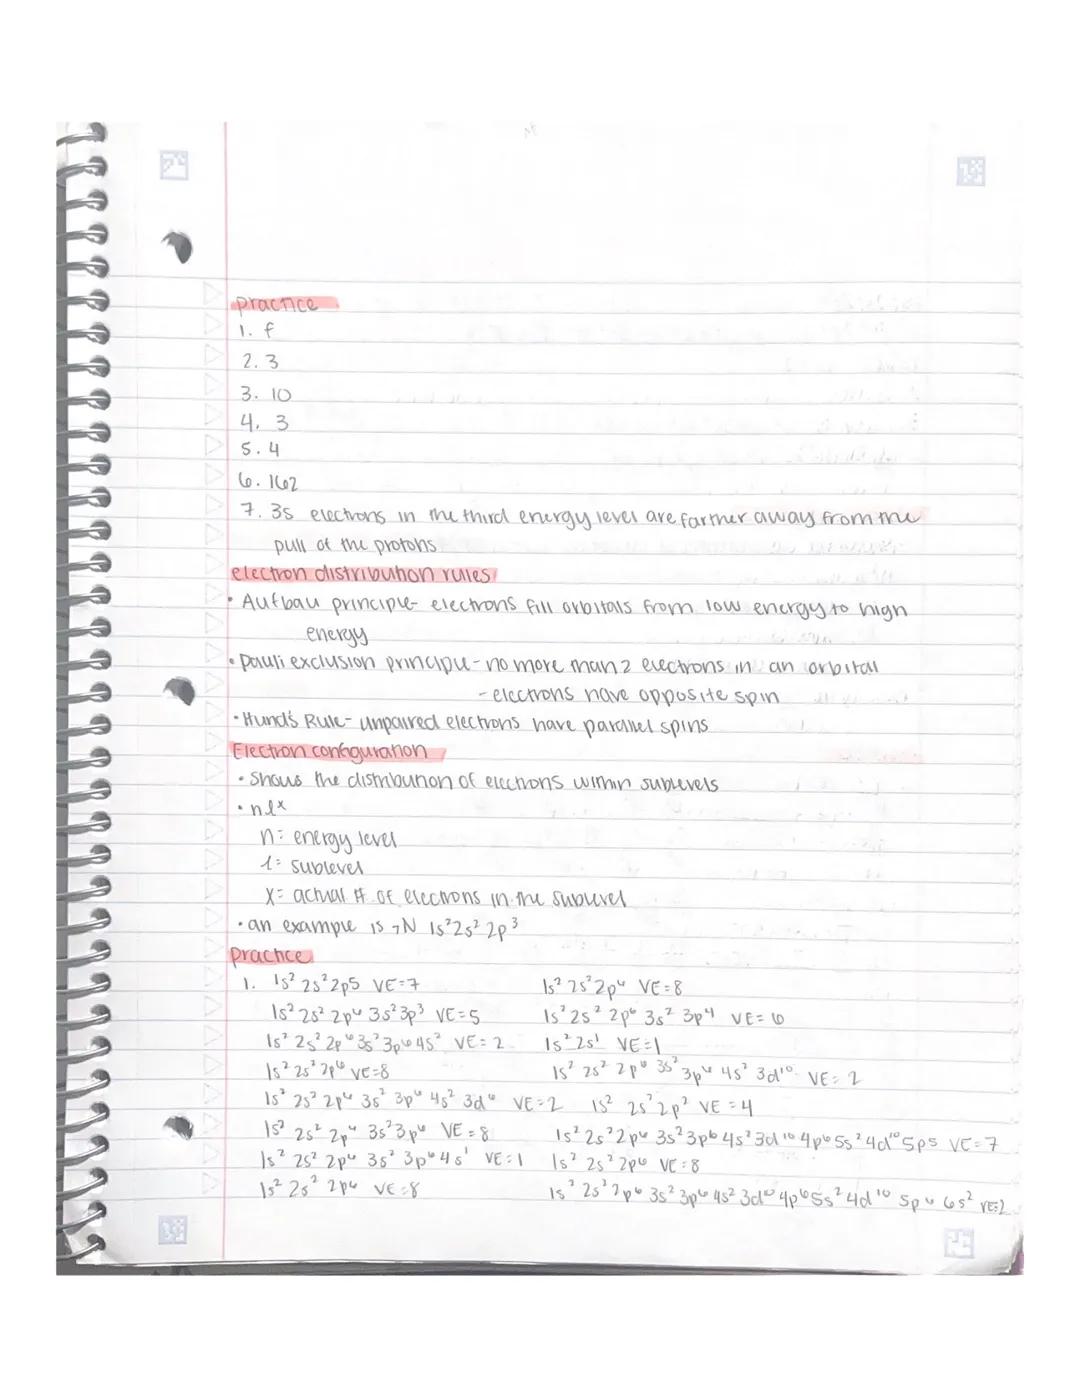 practice
1. f
2. 3
3. 10
4. 3
5. 4
6. 162
7. 3s electrons in the third energy level are farther away from the
pull of the protons
electron distribution rules
• Aufbau principle- electrons fill orbitals from low energy to high
energy
• pauli exclusion principle - no more than 2 electrons in an orbital
- electrons have opposite spin
• Hund's Rule- unpaired electrons have parallel spins
Electron configuration
• shows the distribution of electrons within sublevels
• nlˣ
n= energy level
l= sublevel
x= actual # of electrons in the sublevel
• an example is ₇N 1s²2s²2p³
practice
1. 1s² 2s² 2p5 VE=7 1s² 2s² 2p⁶ VE=8
1s² 2s² 2p⁶ 3s² 3p³ VE=5 1s² 2s² 2p⁶ 3s² 3p⁴ VE=6
1s² 2s² 2p⁶ 3s² 3p⁶ 4s² VE=2 1s² 2s¹ VE=1
1s² 2s² 2p⁶ VE=8 1s² 2s² 2p⁶ 3s² 3p⁶ 4s² 3d¹⁰ VE=2
1s² 2s² 2p⁶ 3s² 3p⁶ 4s² 3d⁶ VE=2 1s² 2s² 2p² VE=4
1s² 2s² 2p⁶ 3s² 3p⁶ VE=8 1s² 2s² 2p⁶ 3s² 3p⁶ 4s² 3d¹⁰ 4p⁶ 5s² 4d¹⁰ 5p5 VE=7
1s² 2s² 2p⁶ 3s² 3p⁶ 4s¹ VE=1 1s² 2s² 2p⁶ VE=8
1s² 2s² 2p⁶ VE=8 1s² 2s² 2p⁶ 3s² 3p⁶ 4s² 3d¹⁰ 4p⁶ 5s² 4d¹⁰ 5p⁶ 6s² VE=2